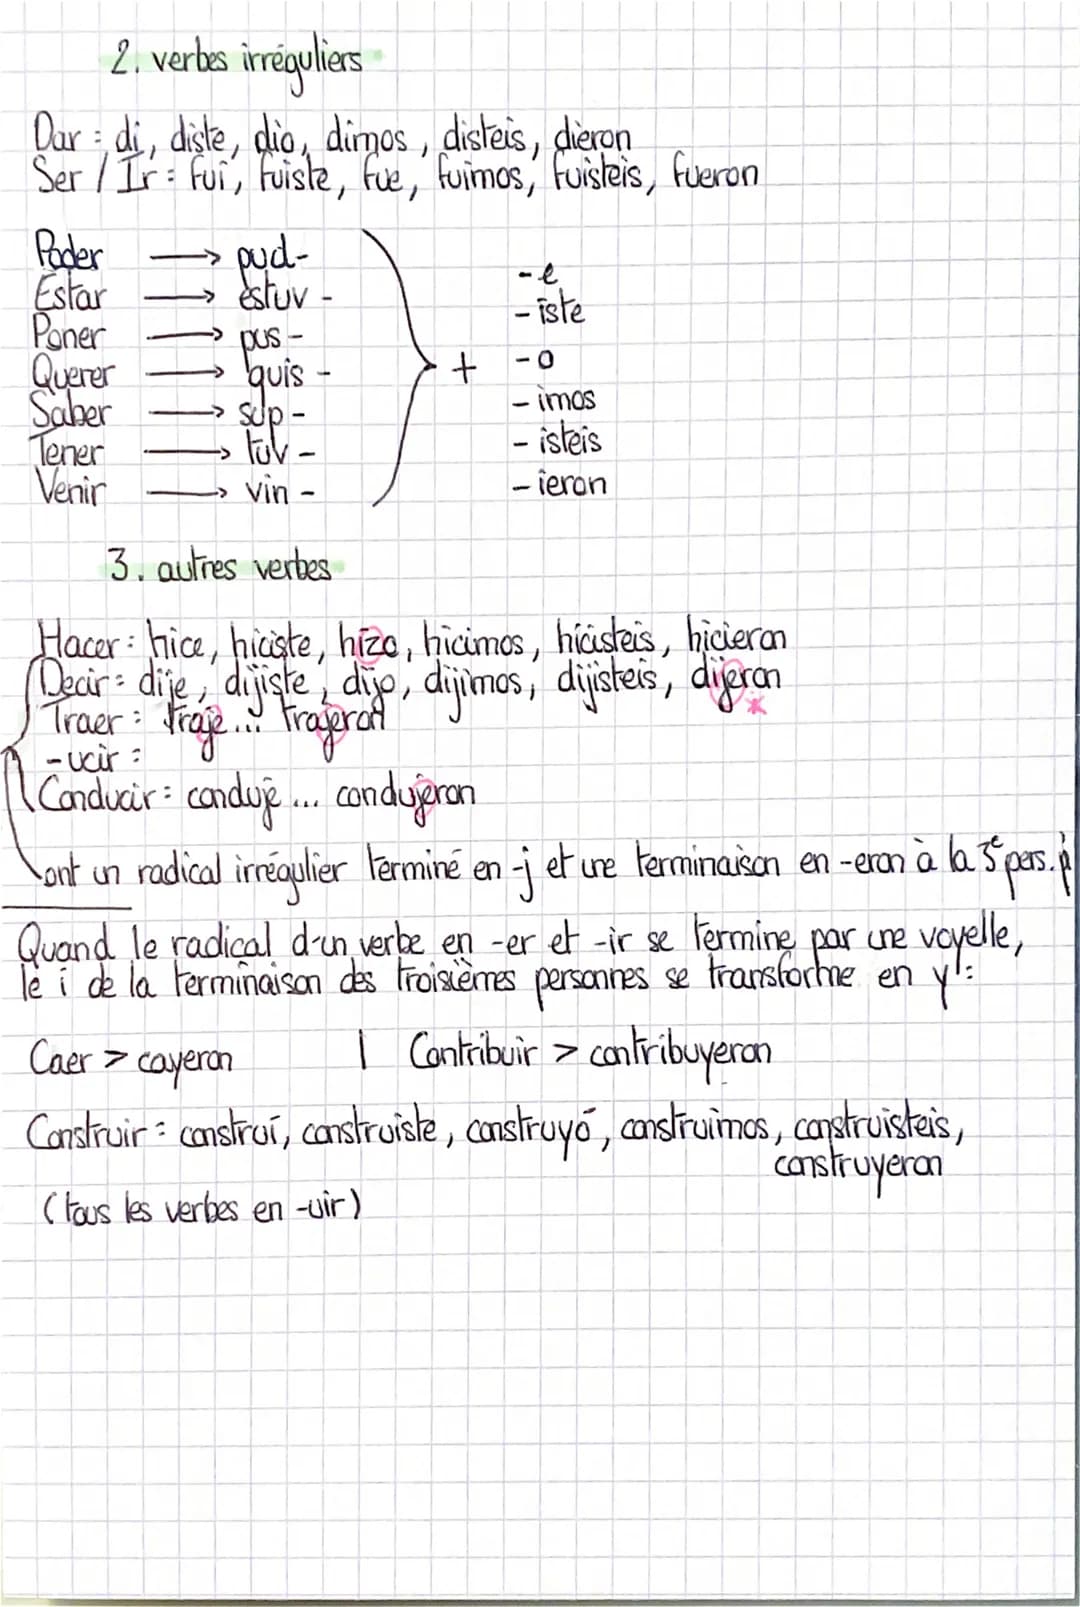 2. verbes irréguliers
Dar : di, diste, dio, dimos, disteis, dieron
Ser / Ir : fui, fuiste, fue, fuimos, fuisteis, fueron
Poder → pud- -e
Estar → estuv - - iste
Poner → pus - - o
Querer → quis - + - imos
Saber → sup - - isteis
Tener → tuv - - ieron
Venir → vin -
3. autres verbes
Hacer : hice, hiciste, hizo, hicimos, hicisteis, hicieron
Decir : dije, dijiste, dijo, dijimos, dijisteis, dijeron
Traer : traje ... trajeron *
-ucir :
Conducir : conduje ... condujeron
ont un radical irrégulier terminé en -j et une terminaison en -eron à la 3e pers. p
Quand le radical d'un verbe en -er et -ir se termine par une voyelle,
le i de la terminaison des troisièmes personnes se transforme en y :
Caer > cayeron | Contribuir > contribuyeron
Construir : construí, construiste, construyó, construimos, construisteis,
construyeron
(tous les verbes en -uir)